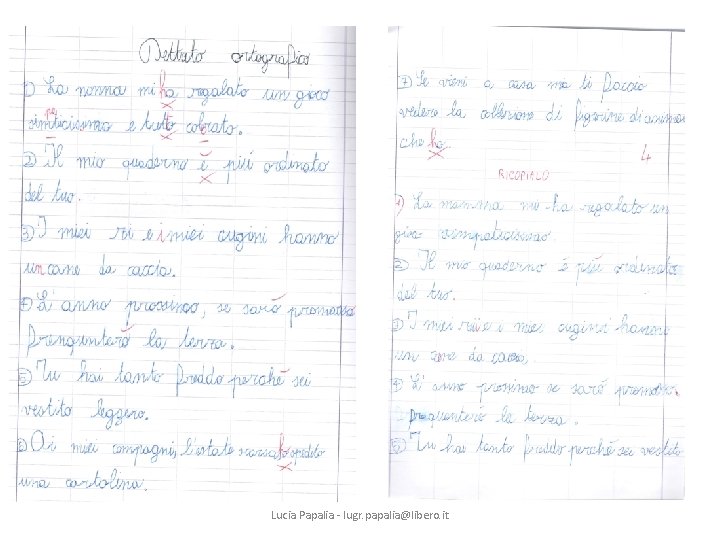 Dettato ortografico
1) La nonna mi ha regalato un gioco
simticissimo e tutto colorato.
2) Il mio quaderno è più ordinato
del tuo.
3) I miei zii e i miei cugini hanno
un cane da caccia.
4) L'anno prossimo, se sarò promosso
frenqunterò la terza.
5) Tu hai tanto freddo perché sei
vestito leggero.
6) Oi miei compagni, l'estate scorsa ho spedito
una cartolina.
7) Se vieni a casa mia ti faccio
vedere la collezione di figurine di animali
che ho.
4
RICOPIALO
1) La mamma me ha regalato un
2) Il mio quaderno è più ordinato
del tuo.
3) I miei zii e i miei cugini hanno
un cane da caccia.
4) L'anno prossimo se sarò promosso.
la terza.
5) Tu hai tanto freddo perché sei vestito
Lucia Papalia - lugr.papalia@libero.it